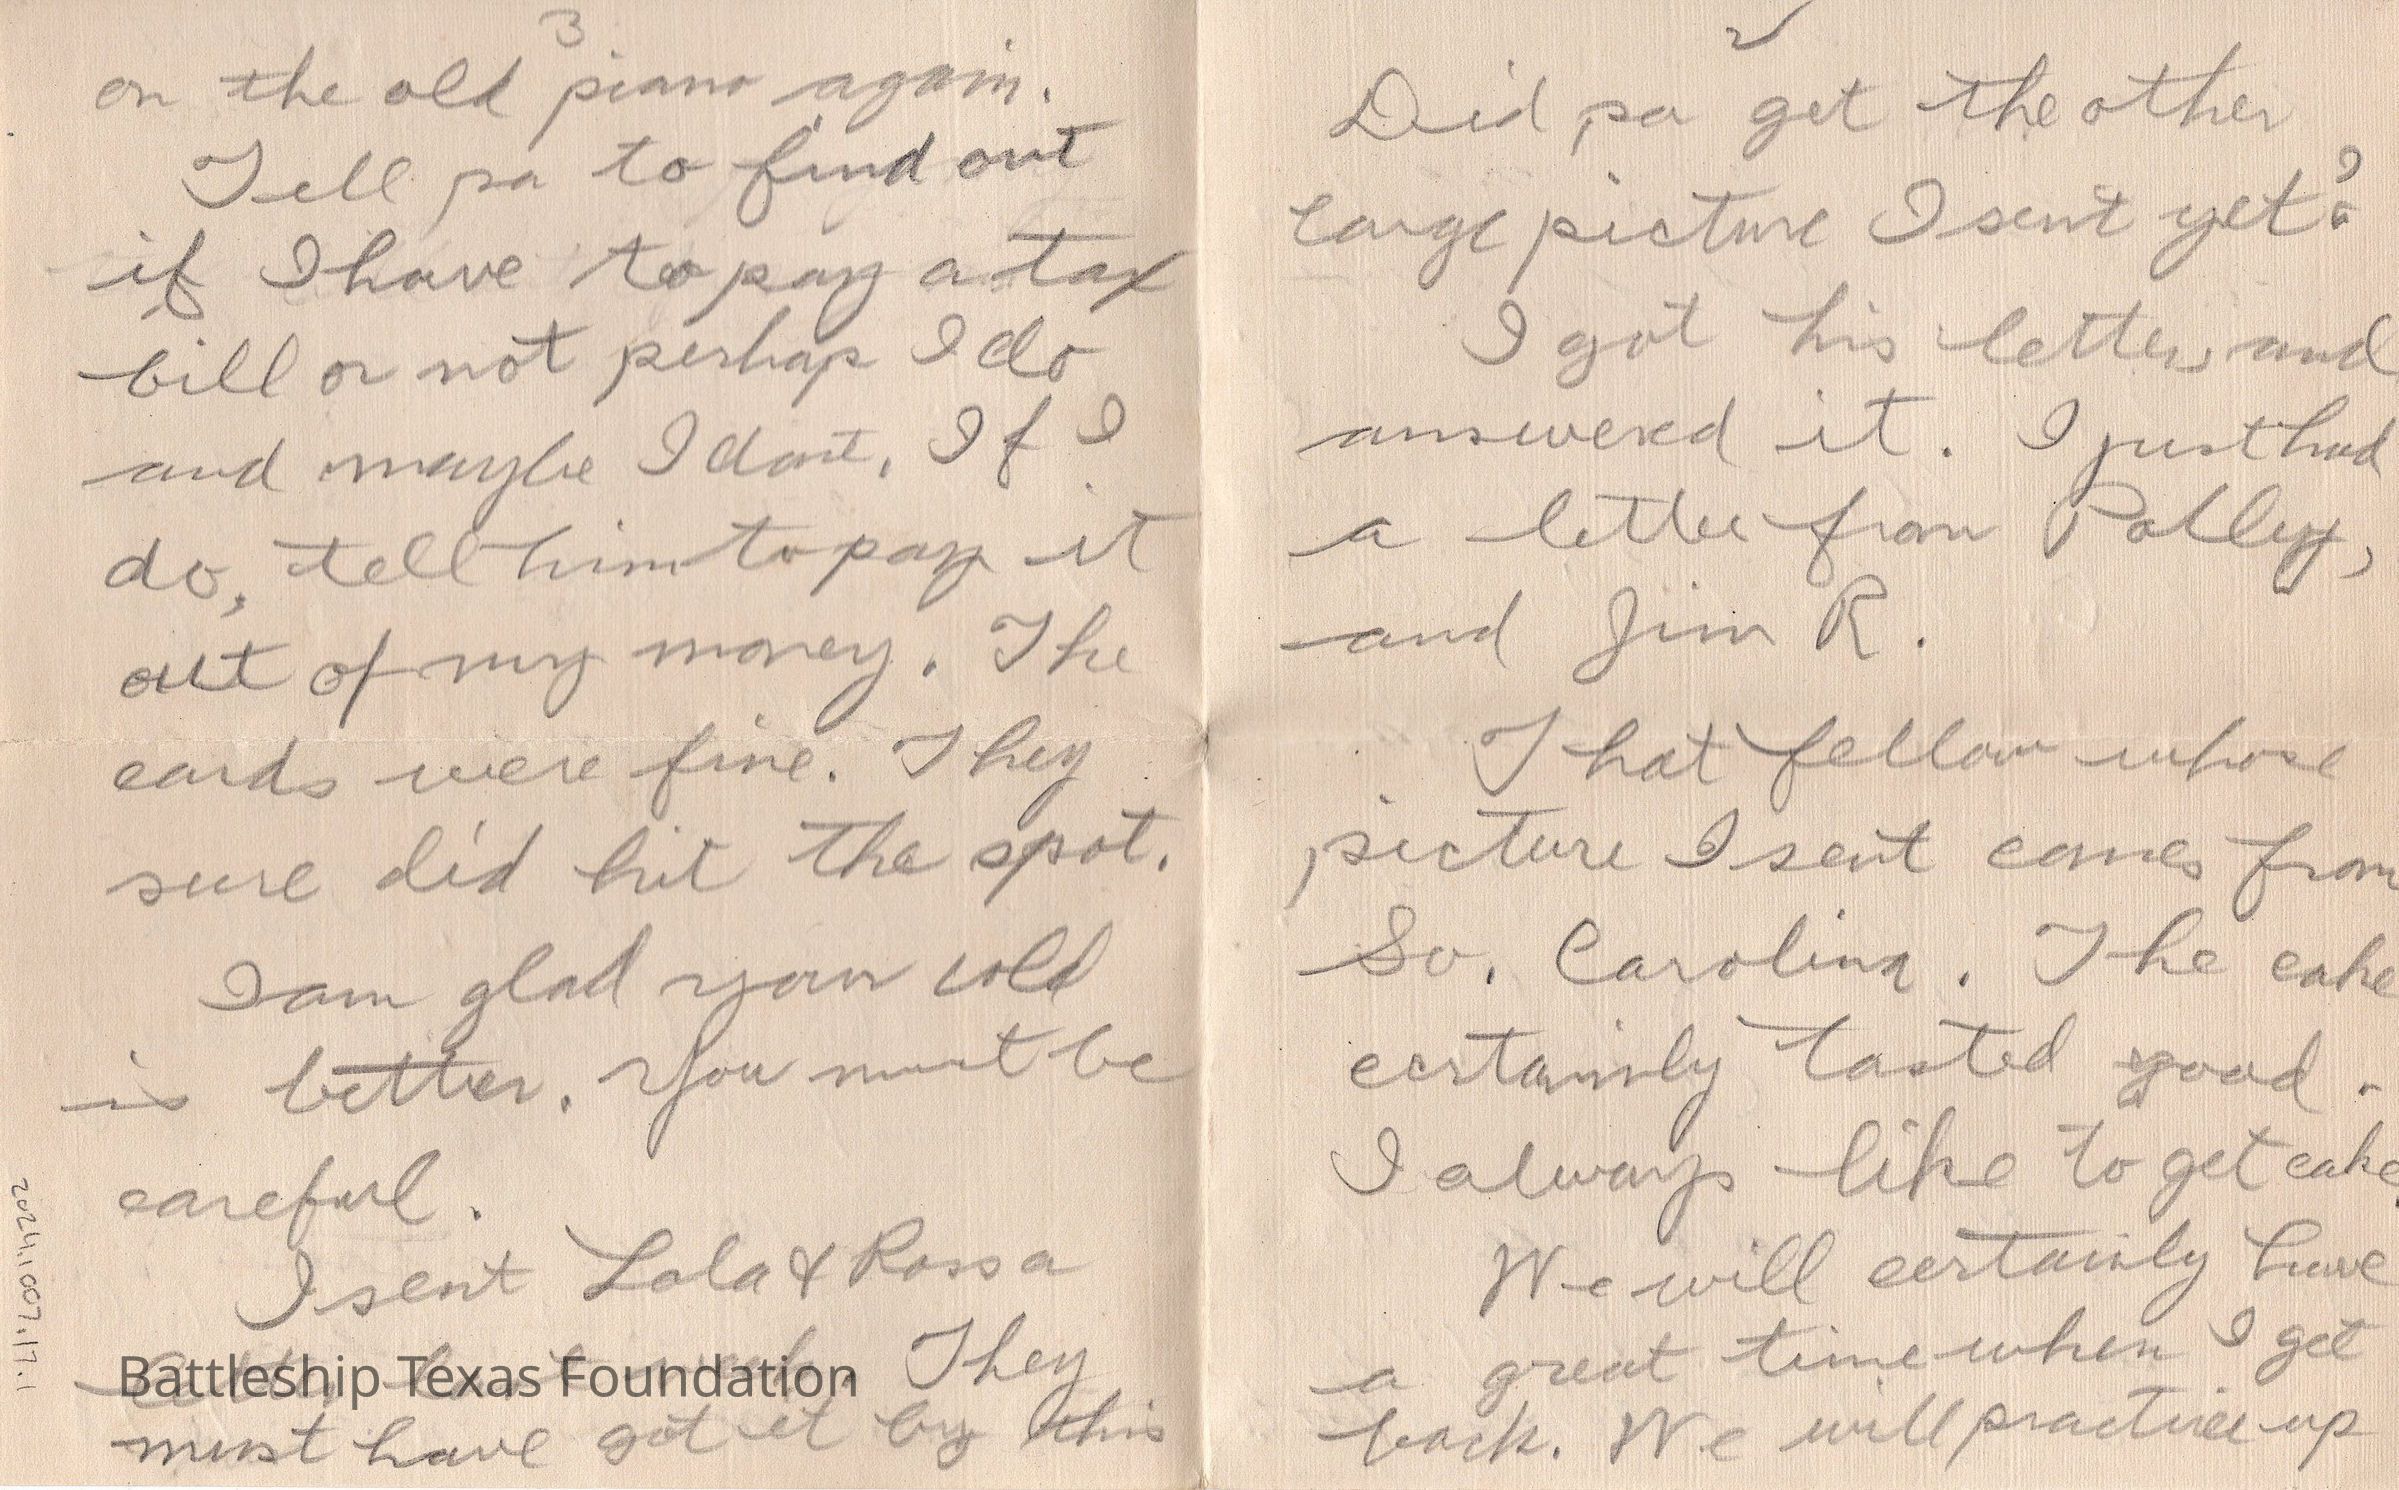 3
on the old piano again.
Tell pa to find out
if I have to pay a tax
bill or not perhaps I do
and maybe I dont. If I
do, tell him to pay it
out of my money. The
cards were fine. They
sure did hit the spot.
I am glad your cold
is better. You must be
careful.
I sent Lola & Rossa
They
must have got it by this
Battleship Texas Foundation
2024.1.007.17.1
2
Did pa get the other
large picture I sent yet?
I got his letter, and
answered it. I just had
a letter from Polley,
and Jim R.
That fellow whose
picture I sent comes from
So. Carolina. The cake
certainly tasted good.
I always like to get cake.
We will certainly have
a great time when I get
back. We will practice up